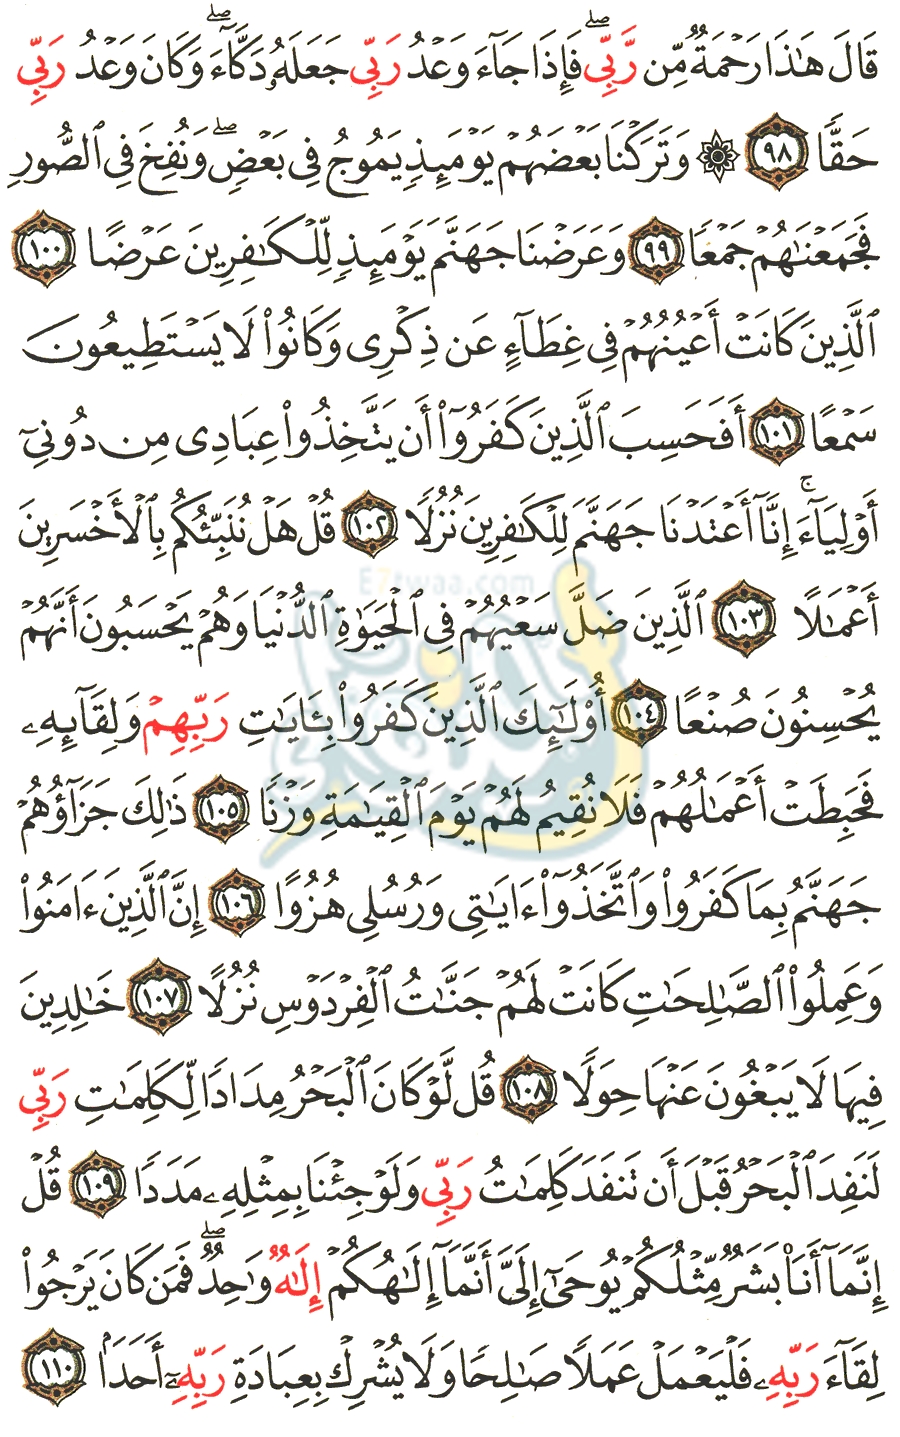 قَالَ هَـٰذَا رَحْمَةٌ مِّن رَّبِّى ۖ فَإِذَا جَآءَ وَعْدُ رَبِّى جَعَلَهُۥ دَكَّآءَ ۖ وَكَانَ وَعْدُ رَبِّى
حَقًّا ٩٨ ۞ وَتَرَكْنَا بَعْضَهُمْ يَوْمَئِذٍ يَمُوجُ فِى بَعْضٍ ۖ وَنُفِخَ فِى ٱلصُّورِ
فَجَمَعْنَـٰهُمْ جَمْعًا ٩٩ وَعَرَضْنَا جَهَنَّمَ يَوْمَئِذٍ لِّلْكَـٰفِرِينَ عَرْضًا ١٠٠
ٱلَّذِينَ كَانَتْ أَعْيُنُهُمْ فِى غِطَآءٍ عَن ذِكْرِى وَكَانُوا۟ لَا يَسْتَطِيعُونَ
سَمْعًا ١٠١ أَفَحَسِبَ ٱلَّذِينَ كَفَرُوٓا۟ أَن يَتَّخِذُوا۟ عِبَادِى مِن دُونِىٓ
أَوْلِيَآءَ ۚ إِنَّآ أَعْتَدْنَا جَهَنَّمَ لِلْكَـٰفِرِينَ نُزُلًا ١٠٢ قُلْ هَلْ نُنَبِّئُكُم بِٱلْأَخْسَرِينَ
أَعْمَـٰلًا ١٠٣ ٱلَّذِينَ ضَلَّ سَعْيُهُمْ فِى ٱلْحَيَوٰةِ ٱلدُّنْيَا وَهُمْ يَحْسَبُونَ أَنَّهُمْ
يُحْسِنُونَ صُنْعًا ١٠٤ أُو۟لَـٰٓئِكَ ٱلَّذِينَ كَفَرُوا۟ بِـَٔايَـٰتِ رَبِّهِمْ وَلِقَآئِهِۦ
فَحَبِطَتْ أَعْمَـٰلُهُمْ فَلَا نُقِيمُ لَهُمْ يَوْمَ ٱلْقِيَـٰمَةِ وَزْنًا ١٠٥ ذَٰلِكَ جَزَآؤُهُمْ
جَهَنَّمُ بِمَا كَفَرُوا۟ وَٱتَّخَذُوٓا۟ ءَايَـٰتِى وَرُسُلِى هُزُوًا ١٠٦ إِنَّ ٱلَّذِينَ ءَامَنُوا۟
وَعَمِلُوا۟ ٱلصَّـٰلِحَـٰتِ كَانَتْ لَهُمْ جَنَّـٰتُ ٱلْفِرْدَوْسِ نُزُلًا ١٠٧ خَـٰلِدِينَ
فِيهَا لَا يَبْغُونَ عَنْهَا حِوَلًا ١٠٨ قُل لَّوْ كَانَ ٱلْبَحْرُ مِدَادًا لِّكَلِمَـٰتِ رَبِّى
لَنَفِدَ ٱلْبَحْرُ قَبْلَ أَن تَنفَدَ كَلِمَـٰتُ رَبِّى وَلَوْ جِئْنَا بِمِثْلِهِۦ مَدَدًا ١٠٩ قُلْ
إِنَّمَآ أَنَا۠ بَشَرٌ مِّثْلُكُمْ يُوحَىٰٓ إِلَىَّ أَنَّمَآ إِلَـٰهُكُمْ إِلَـٰهٌ وَٰحِدٌ ۖ فَمَن كَانَ يَرْجُوا۟
لِقَآءَ رَبِّهِۦ فَلْيَعْمَلْ عَمَلًا صَـٰلِحًا وَلَا يُشْرِكْ بِعِبَادَةِ رَبِّهِۦٓ أَحَدًۢا ١١٠
E7twaa.com